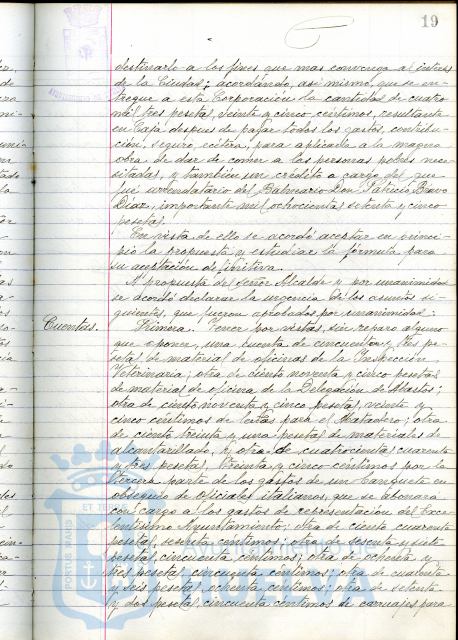 19
destinarlo a los fines que mas convenga al interes
de la Ciudad; acordándo, así mismo, que se en-
tregue a esta Corporación la cantidad de cuatro
mil tres pesetas, veinte y cinco centimos, resultante
en Caja despues de pagar todos los gastos, contribu-
ción, seguro, ecétera, para aplicarla a la magna
obra de dar de comer a las personas pobres nece-
sitadas, y tambien un crédito a cargo del que
fué arrendatario del Balneario Don Patricio Bravo
Díaz, importante mil ochocientas setenta y cinco
pesetas.
En vista de ello se acordó aceptar en princi-
pio la propuesta y estudiar la fórmula para
su aceptación definitiva.
A propuesta del Señor Alcalde y por unanimidad
se acordó declarar la urgencia de los asuntos si-
guientes, que fueron aprobados por unanimidad:
Cuentas.
Primera. Tener por vistas, sin reparo alguno
que oponer, una cuenta de cincuenta y tres pe-
setas de material de oficinas de la Inspección
Veterinaria; otra de ciento noventa y cinco pesetas
de material de oficina de la Delegación de Abastos;
otra de ciento noventa y cinco pesetas, veinte y
cinco centimos de leñas para el Matadero; otra
de ciento treinta y una pesetas de materiales de
alcantarillado, y otra de cuatrocientas cuarenta
y tres pesetas, treinta y cinco centimos por la
tercera parte de los gastos de un banquete en
obsequio de oficiales italianos, que se abonará
con cargo a los gastos de representación del Exce-
lentísimo Ayuntamiento; otra de ciento cuarenta
pesetas, sesenta centimos; otra de sesenta y siete
pesetas, cincuenta centimos; otra de ochenta y
tres pesetas, cincuenta centimos; otra de cuarenta
y seis pesetas, ochenta centimos; otra de setenta
y dos pesetas, cincuenta centimos de carruajes para